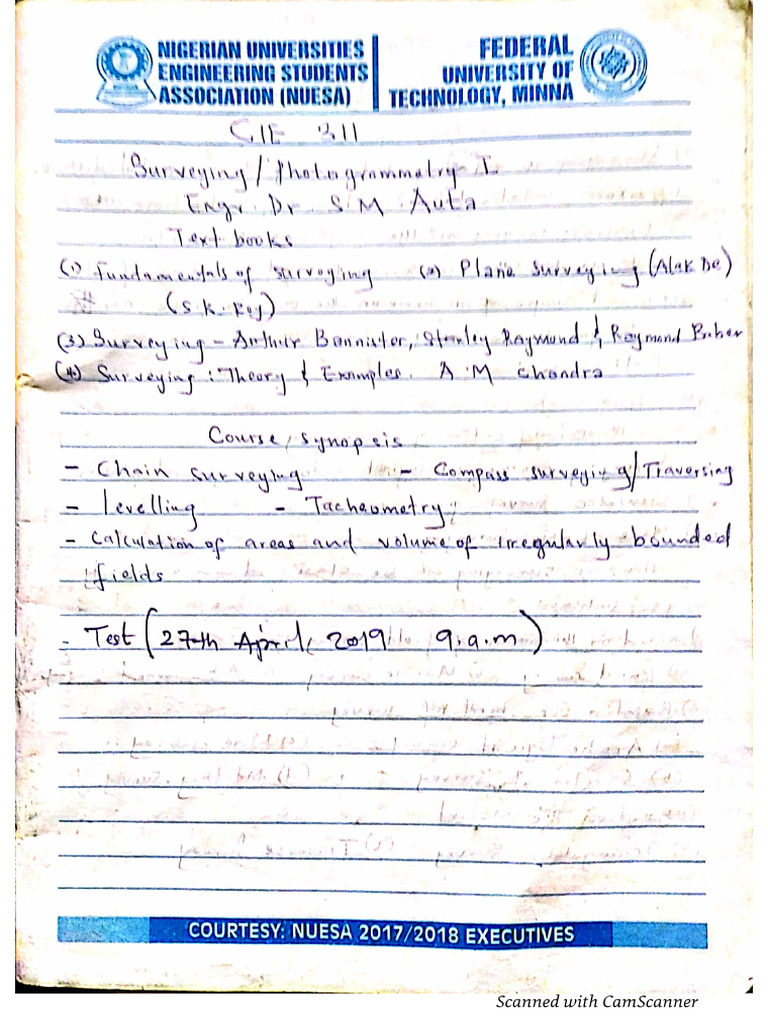 NIGERIAN UNIVERSITIES
ENGINEERING STUDENTS
ASSOCIATION (NUESA)
FEDERAL
UNIVERSITY OF
TECHNOLOGY, MINNA
CIE 311
Surveying / Photogrammetry I
Engr. Dr. S M Auta
Text books
(1) Fundamentals of surveying (2) Plane Surveying (Alak De)
(S.K. Roy)
(3) Surveying - Arthur Bannister, Stanley Raymond & Raymond Baker
(4) Surveying : Theory & Examples. A.M Chandra
Course, synopsis
- Chain surveying - Compass surveying/Traversing
- Levelling - Tacheometry
- Calculation of areas and volume of irregularly bounded
fields
- Test (27th April, 2019 9.a.m)
COURTESY: NUESA 2017/2018 EXECUTIVES
Scanned with CamScanner